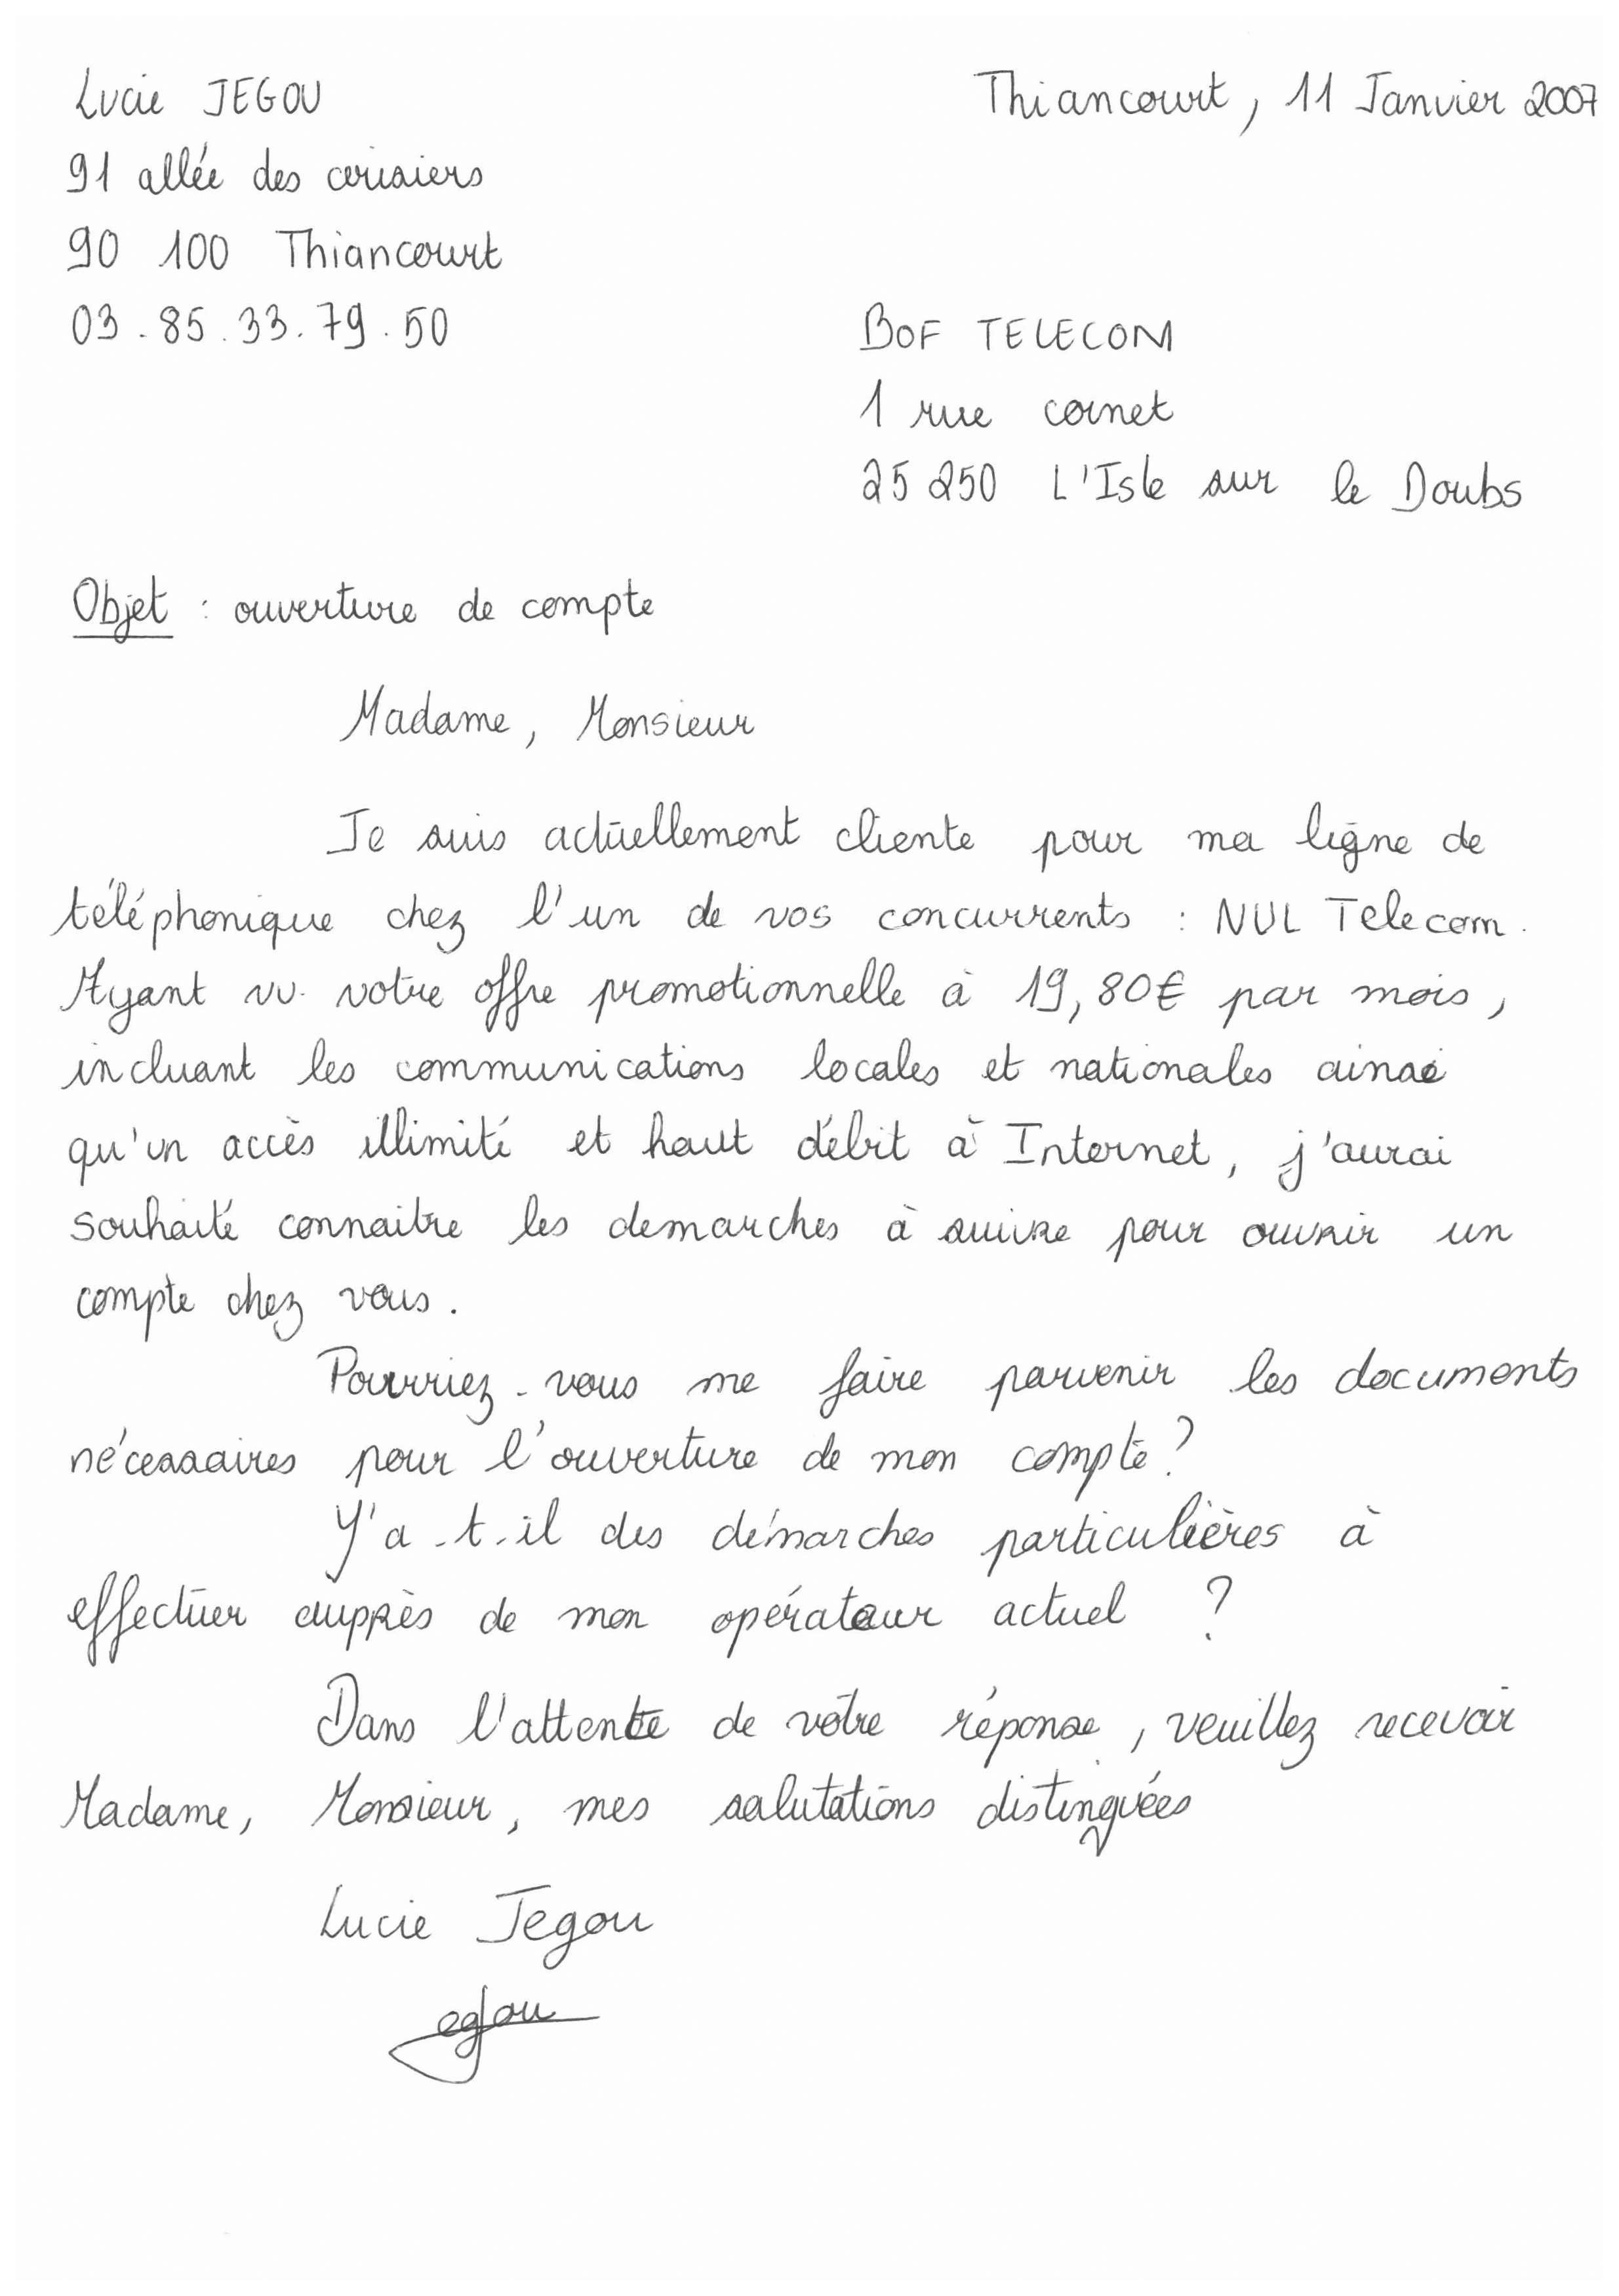 Lucie JEGOU
Thiancourt, 11 Janvier 2007
91 allée des cerisiers
90 100 Thiancourt
03.85.33.79.50
BOF TELECOM
1 rue cornet
25 250 L'Isle sur le Doubs
Objet : ouverture de compte
Madame, Monsieur
Je suis actuellement cliente pour ma ligne de
téléphonique chez l'un de vos concurrents : NUL Telecom.
Ayant vu votre offre promotionnelle à 19,80€ par mois,
incluant les communications locales et nationales ainsi
qu'un accès illimité et haut débit à Internet, j'aurai
souhaité connaitre les demarches à suivre pour ouvrir un
compte chez vous.
Pourriez-vous me faire parvenir les documents
nécessaires pour l'ouverture de mon compte ?
Y'a-t-il des démarches particulières à
effectuer auprès de mon opérateur actuel ?
Dans l'attente de votre réponse, veuillez recevoir
Madame, Monsieur, mes salutations distinguées
Lucie Jegou
egou